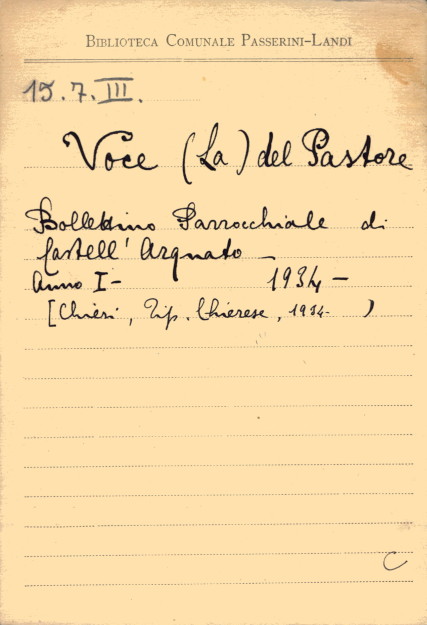 BIBLIOTECA COMUNALE PASSERINI-LANDI
15.7.III.
Voce (La) del Pastore
Bollettino Parrocchiale di
Castell' Arquato —
Anno I- 1934 —
[Chieri, Tip. Chierese, 1934- )
C